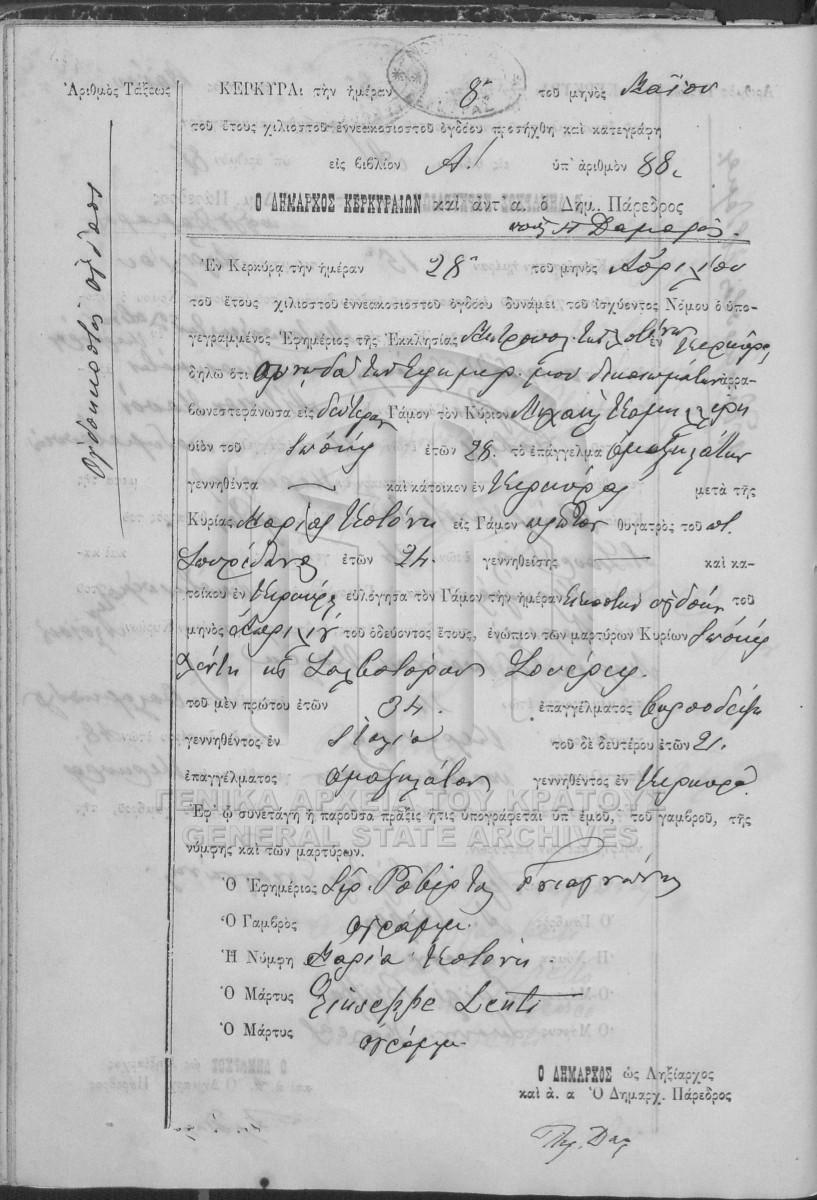 Ἀριθμὸς Τάξεως
Ὀγδοηκοστὸς ὄγδοος
ΚΕΡΚΥΡΑι τὴν ἡμέραν 8η τοῦ μηνὸς Μαΐου
τοῦ ἔτους χιλιοστοῦ ἐννεακοσιοστοῦ ὀγδόου προσήχθη καὶ κατεγράφη
εἰς βιβλίον Α! ὑπ' ἀριθμὸν 88.
Ο ΔΗΜΑΡΧΟΣ ΚΕΡΚΥΡΑΙΩΝ καὶ ἀντ. α. ὁ Δημ. Πάρεδρος
Δαμασ
Ἐν Κερκύρᾳ τὴν ἡμέραν 28η τοῦ μηνὸς Ἀπριλίου
τοῦ ἔτους χιλιοστοῦ ἐννεακοσιοστοῦ ὀγδόου δυνάμει τοῦ ἰσχύοντος Νόμου ὁ ὑπο-
γεγραμμένος Ἐφημέριος τῆς Ἐκκλησίας Μητροπολ. τῶν Λατίνων ἐν Κερκύρᾳ
δηλῶ ὅτι τῶν Ἐφημερ. μου δικαιωμάτων ἀρρα-
βωνεστεφάνωσα εἰς δεύτερον Γάμον τὸν Κύριον Μιχαὴλ Καμηλλέρη
υἱὸν τοῦ Ἰωσὴφ ἐτῶν 28. τὸ ἐπάγγελμα ἁμαξηλάτην
γεννηθέντα — καὶ κάτοικον ἐν Κερκύρᾳ μετὰ τῆς
Κυρίας Μαρίας Κοτόνη εἰς Γάμον πρῶτον θυγατρὸς τοῦ π.
Σπυρίδωνος ἐτῶν 24 γεννηθείσης — καὶ κα-
τοίκου ἐν Κερκύρᾳ εὐλόγησα τὸν Γάμον τὴν ἡμέραν Εἰκοστὴν ὀγδόην τοῦ
μηνὸς Ἀπριλίου τοῦ ὁδεύοντος ἔτους, ἐνώπιον τῶν μαρτύρων Κυρίων Ἰωσὴφ
Λέντη καὶ Σαλβατόρου
τοῦ μὲν πρώτου ἐτῶν 34. ἐπαγγέλματος βυρσοδέψη
γεννηθέντος ἐν Ἰταλίᾳ τοῦ δὲ δευτέρου ἐτῶν 21.
ἐπαγγέλματος ἁμαξηλάτου γεννηθέντος ἐν Κερκύρᾳ.
ΓΕΝΙΚΑ ΑΡΧΕΙΑ ΤΟΥ ΚΡΑΤΟΥΣ
Ἐφ' ᾧ συνετάγη ἡ παροῦσα πρᾶξις ἥτις ὑπογράφεται ὑπ' ἐμοῦ, τοῦ γαμβροῦ, τῆς
GENERAL STATE ARCHIVES
νύμφης καὶ τῶν μαρτύρων.
Ὁ Ἐφημέριος Ροβέρτος
Ὁ Γαμβρὸς ἀγράμμ.
Ἡ Νύμφη Μαρία Κοτόνη.
Ὁ Μάρτυς Giuseppe Lenti
Ὁ Μάρτυς ἀγράμμ.
Ο ΔΗΜΑΡΧΟΣ ὡς Ληξίαρχος
καὶ ἀ. α Ὁ Δημαρχ. Πάρεδρος